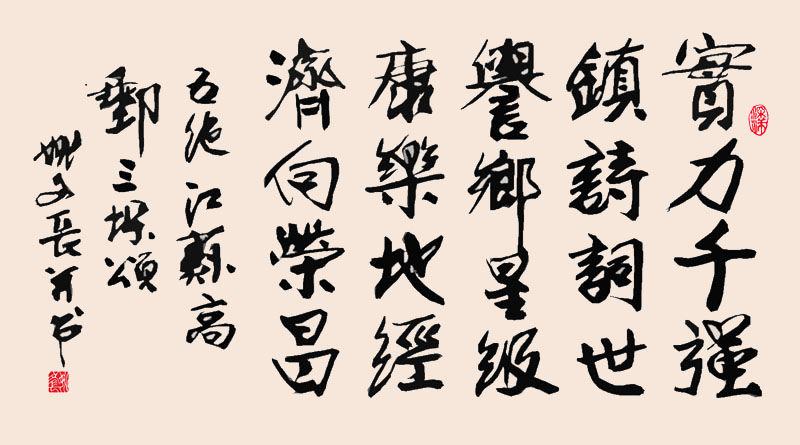 實力千强
鎮詩詞世
譽鄉星級
康樂地經
濟向榮昌
五绝江蘇高
郵三垛頌
姚文長并书